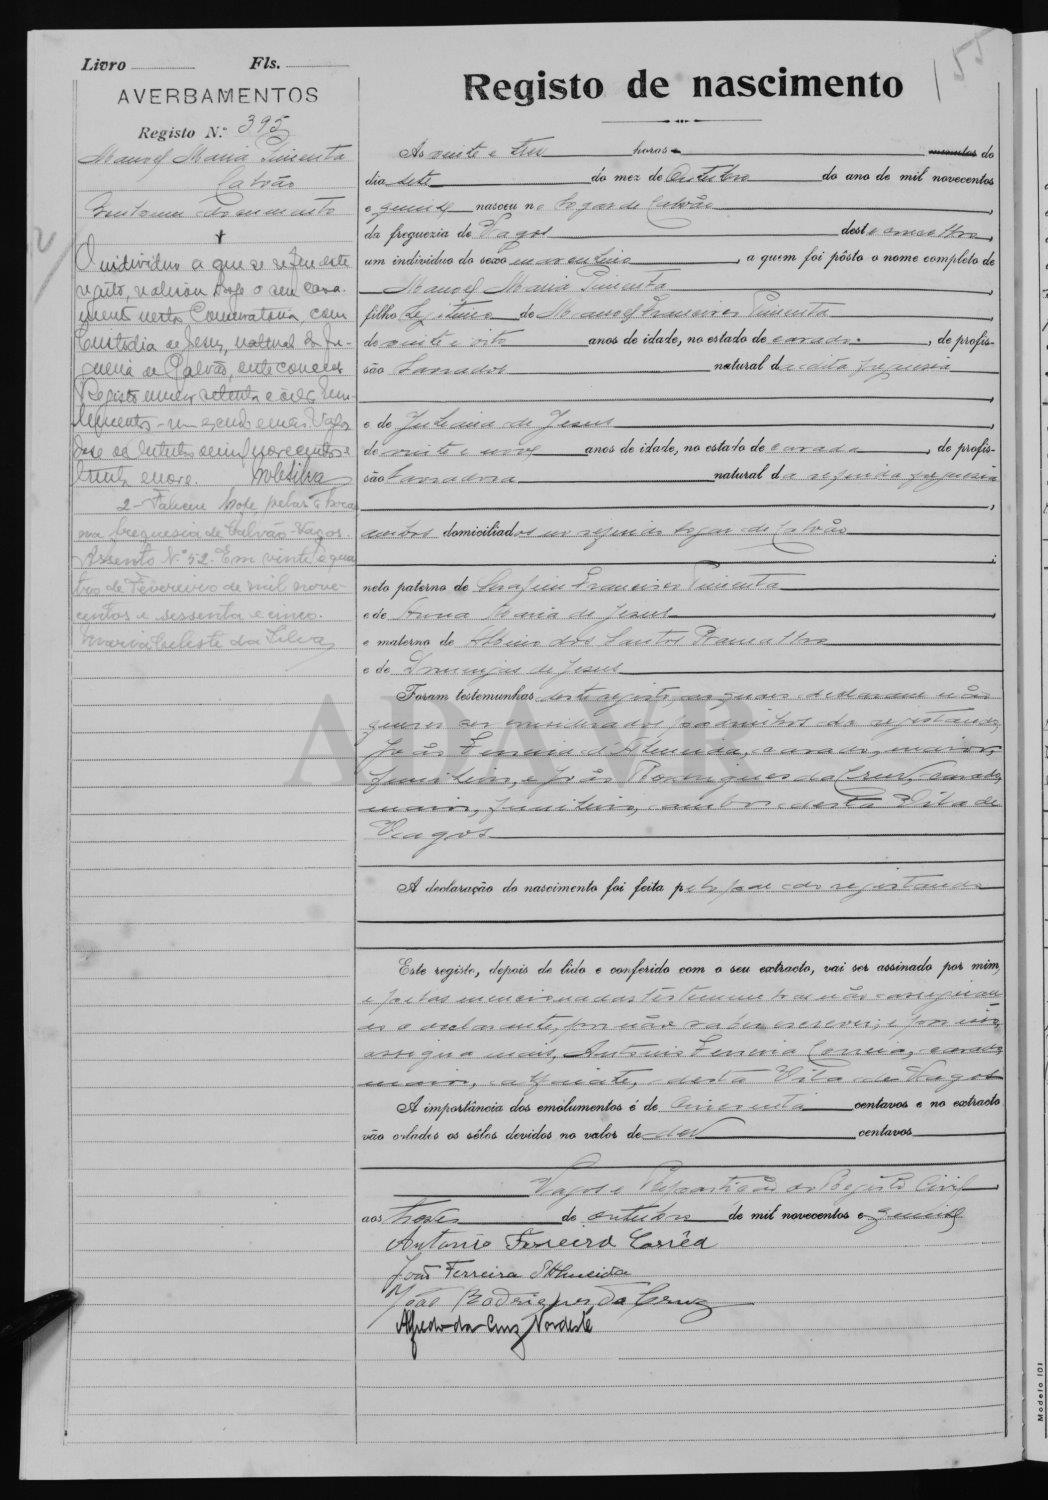 Livro Fls.
AVERBAMENTOS
Registo N.º 395
Manoel Maria Pimenta
Calvão
O individuo a que se refere este
registo, realisou hoje o seu casa-
mento nesta Conservatoria, com
Custodia de Jesus, natural da fre-
guesia de Calvão, deste concelho
Registo numero setenta e oito.
Vagos
doze de outubro de mil novecentos e
trinta e nove.
2 - Faleceu hoje, pelas horas
na freguesia de Calvão - Vagos.
Assento N.º 52. Em vinte e qua-
tro de Fevereiro de mil nove-
centos e sessenta e cinco.
Maria Celeste da Silva
155
Registo de nascimento
Ás vinte e tres horas minutos do
dia sete do mez de Outubro do ano de mil novecentos
e quinze nasceu no logar de Calvão
da freguezia de Vagos deste concelho
um individuo do sexo masculino, a quem foi pôsto o nome completo de
Manoel Maria Pimenta
filho legitimo de Manoel Francisco Pimenta
de vinte e oito anos de idade, no estado de casado, de profis-
são Lavrador natural da dita freguesia
e de Juliana de Jesus
de vinte e nove anos de idade, no estado de casada, de profis-
são Lavradora natural da referida freguesia
ambos domiciliados no referido logar de Calvão
neto paterno de Serafim Francisco Pimenta
e de Anna Maria de Jesus
e materno de Albino dos Santos Ramalho
e de Domingas de Jesus
Foram testemunhas deste registo, as quais declararam não
querer ser considerados padrinhos do registando,
João Ferreira d'Almeida, casado, maior,
funileiro, e João Rodrigues da Cruz, casado,
maior, funileiro, ambos desta Vila de
Vagos
A declaração do nascimento foi feita pelo pae do registando
Este registo, depois de lido e conferido com o seu extracto, vai ser assinado por mim,
e pelas mencionadas testemunhas não assignan-
do o declarante, por não saber escrever; e por isso,
assigna mais, Antonio Ferreira Corrêa, casado,
maior, alfaiate, desta Vila de Vagos
A importância dos emolumentos é de cincoenta centavos e no extracto
vão colados os sêlos devidos no valor de dez centavos
Vagos e Repartição do Registo Civil
aos treze de outubro de mil novecentos e quinze
Antonio Ferreira Corrêa
João Ferreira d'Almeida
João Rodrigues da Cruz
Alfredo da Cruz Nordeste
ADAVR
Modelo 101